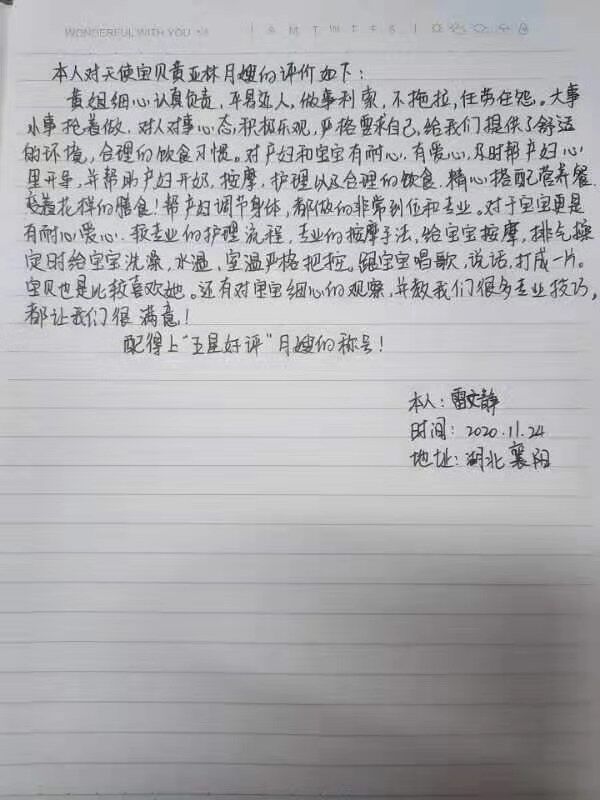 WONDERFUL WITH YOU
S M T W T F S
本人对天使宝贝黄亚林月嫂的评价如下:
黄姐细心认真负责,平易近人,做事利索,不拖拉,任劳任怨。大事
小事抢着做,对人对事心态积极乐观,严格要求自己,给我们提供了舒适
的环境,合理的饮食习惯。对产妇和宝宝有耐心,有爱心,及时帮产妇心
里开导,并帮助产妇开奶,按摩,护理以及合理的饮食,精心搭配营养餐
变着花样的膳食!帮产妇调节身体,都做的非常到位和专业。对于宝宝更是
有耐心爱心.较专业的护理流程,专业的按摩手法,给宝宝按摩,排气操
定时给宝宝洗澡,水温,室温严格把控。跟宝宝唱歌,说话,打成一片。
宝贝也是比较喜欢她。还有对宝宝细心的观察,并教我们很多专业技巧,
都让我们很满意!
配得上"五星好评"月嫂的称号!
本人:雷文静
时间:2020.11.24
地址:湖北襄阳